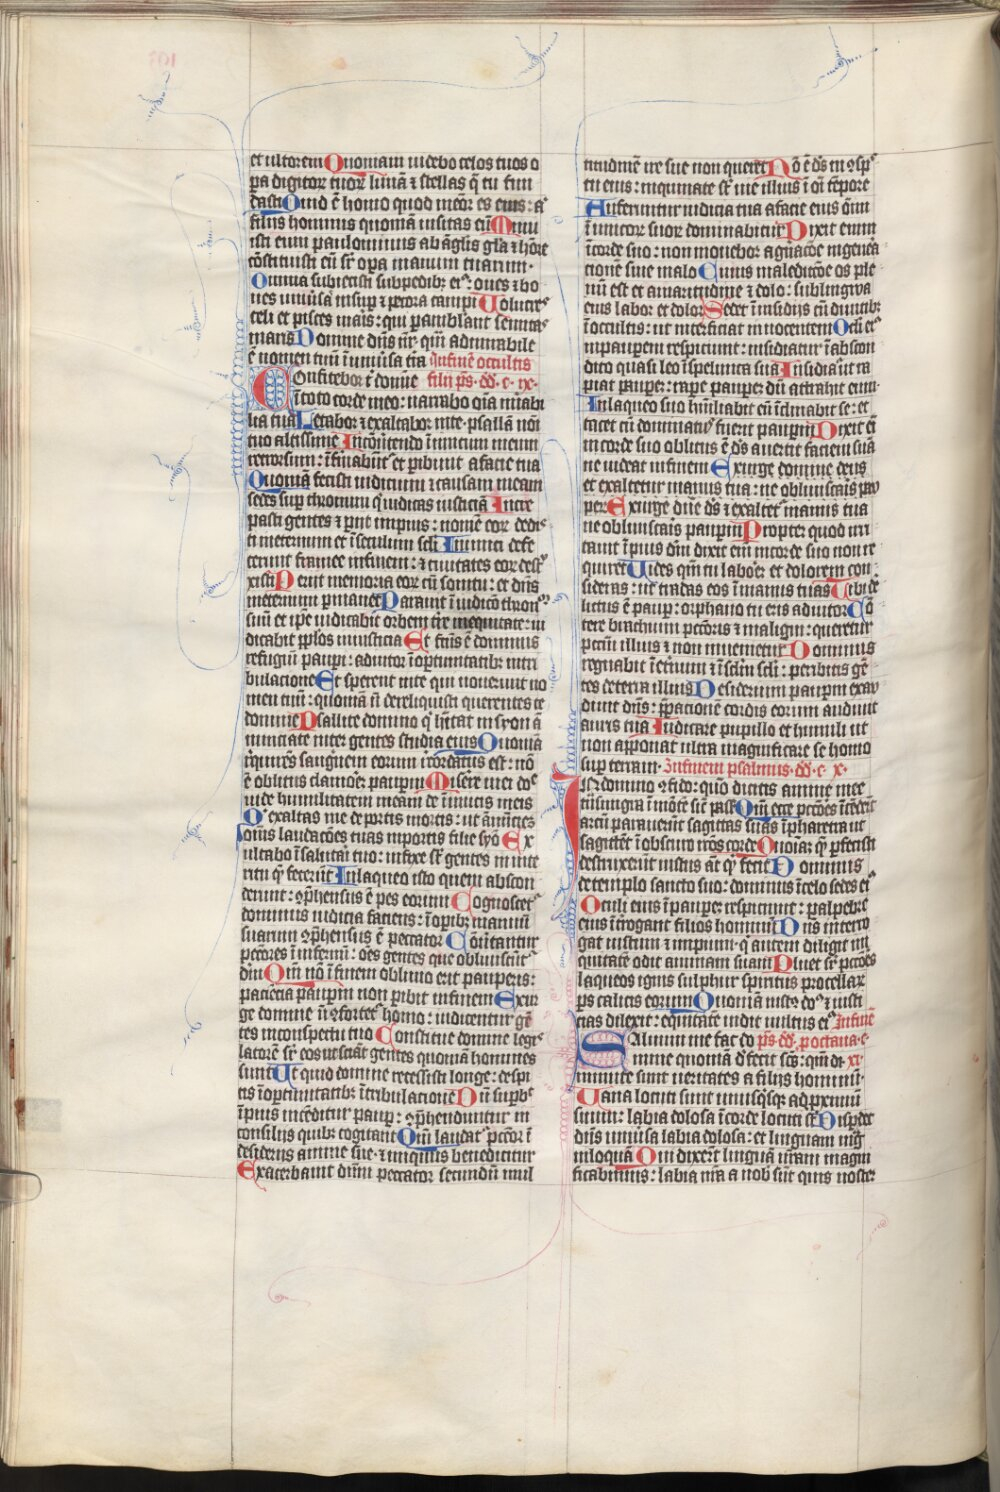 et ultorem Quoniam uidebo celos tuos o
pa digitorz tuorz lunā ⁊ stellas q̄ tu fun
dasti Quid ē homo quod memor es eius: aut
filius hominis quoniam uisitas eū Minu
isti eum paulominus ab āglis gl̄a ⁊ hōre
cōstituisti eū sr̄ opa manuum tuarum·
Omnia subiecisti subpedibz eiꝰ: oues ⁊ bo
ues uniūsa insup ⁊ pecora campi Uolucres
celi et pisces maris: qui pambulant semitas
maris Domine dn̄s nr̄ qm̄ admirabile
ē nomen tuū ī uniūsa t̄ra Infinē occultis
Onfitebor t̄ domine filij ps̄·dd̄·c·ix·
ī toto corde meo: narrabo oīa mirabi
lia tua Letabor ⁊ exaltabo inte· psallā nōi
tuo altissime Incōuertendo īimicum meum
retrorsum: īfirmabūt et pibunt afacie tua
Quoniā fecisti iudicium ⁊ causam meam
sedes sup thronum q̄ iudicas iusticiā Incre
pasti gentes ⁊ piit impius: nomē eorz dele
ti ineternum et īseculum scli Inimici defe
cerunt framee infinem: ⁊ ciuitates eorz dest
xisti Periit memoria eorz cū sonitu: et dn̄s
ineternum pmanet Parauit ī iudicō thron
suū et ip̄e iudicabit orbem t̄re inequitate: iu
dicabit pplos iniusticia Et factꝰ ē dominus
refugiū paupi: adiutor īoportunitatibz intri
bulacione Et sperent inte qui nouerunt no
men tuū: quoniā nō dereliquisti querentes te
domine Psallite domino q̄ hītat in syon ā
nunciate inter gentes studia eius Quoniā
rquires sanguinem eorum recordatus est: nō
ē oblitus clamorē pauperum Miserere mei dn̄e
uide humilitatem meam de īimicis meis
Qui exaltas me de portis mortis: ut ānūciem
omīs laudacōes tuas inportis filie syō Ex
ultabo ī salutari tuo: infixe st̄ gentes in inte
ritu q̄ fecerūt Inlaqueo isto quem abscon
derunt: cōphensus ē pes eorum Cognoscet
dominus iudicia faciens: ī opibz manuū
suarum cōphensus ē peccator Cōuertantur
peccores ī infernū: oēs gentes que obliuiscūt
dm̄ Qm̄ nō ī finem obliuio erit pauperis:
paciecia paupm non pibit infinem Exur
ge domine nō cōfortet homo: iudicentur gē
tes inconspectu tuo Constitue domine legis
latorē sr̄ eos ut sciāt gentes quoniā homines
sunt Ut quid domine recessisti longe: despi
cis ī oportunitatibz ī tribulacione Dū supbit
īpius incēditur paup: cōphenduntur in
consilijs quibz cogitant Qm̄ laudat peccor ī
desiderijs anime sue· ⁊ iniquus benedicitur
Exacerbauit dn̄m peccator secundū mul
titudinē ire sue non queret Nō ē ds̄ in cōsp
tu eius: inquinate st̄ uie illius ī oī tēpore
Auferuntur iudicia tua afacie eius om̄
īimicorz suorz dominabitur Dixit enim
ī corde suo: non mouebor agn̄acōe ingenera
cionē sine malo Cuius maledictōe os ple
nū est et amaritudine ⁊ dolo: sublingwa
eius labor et dolor Sedet ī insidijs cū diuitibz
ī occultis: ut interficiat innocentem Oculi eiꝰ
inpauperem respiciunt: insidiatur ī abscon
dito quasi leo ī spelunca sua Insidiat̄ ut ra
piat pauperē: rapere pauperē dū attrahit eum·
Inlaqueo suo humiliabit eū īclinabit se: et
cadet cū dominatꝰ fuerit pauperum Dixit eī
in corde suo oblitus ē ds̄ auertit faciem suā
ne uideat infinem Exurge domine deus
et exaltetur manus tua: ne obliuiscaris pau
per Exurge dn̄e ds̄ ⁊ exaltet manus tua
ne obliuiscaris pauperum Propter quod irri
tauit īpius dm̄ dixit enī incorde suo non re
quiret Uides qm̄ tu laborē et dolorem con
sideras: ut tradas eos ī manus tuas Tibi de
lictus ē pauper: orphano tu eris adiutor Cō
tere brachium pctōris ⁊ maligni: queretur
pctm̄ illius ⁊ non inuenietur Dominus
regnabit īeternum ⁊ īsclm̄ scli: peribitis gē
tes deterra illius Desiderium pauperum exau
diuit dn̄s: ppacionē cordis eorum audiuit
auris tua Iudicare pupillo et humili ut
non apponat ultra magnificare se homo
sup terram· Infinem psalmus·dd̄·c x·
Ndomino cōfido: quō dicitis anime mee
trāsmigra ī mōtē sic passer Qm̄ ecce pctōres ītēder̄t
arcū parauerūt sagitas suas ī pharetra ut
sagittēt ī obscuro rcōs corde Quoniā q̄ pfecisti
destruxerunt iustus āt qd̄ fecit Dominus
detemplo sancto suo: dominus īcelo sedes eiꝰ
Oculi eius ī pauperē respiciunt: palpebre
eius īt̄rogant filios hominū Dn̄s intero
gat iustum ⁊ impium· q̄ autem diligit ini
quitatē odit animam suam Pluet sr̄ pctōres
laqueos ignis sulphur spiritus procellarz
ps calicis eorum Quoniā iustꝰ dn̄s ⁊ iusti
cias dilexit: equitatē uidit uultus eiꝰ Infinē
Aluum me fac dn̄e ps̄·dd̄·poctaua·c·
nime quoniā defecit scs̄: qm̄ di xi·
minute sunt ueritates a filijs hominū·
Uana locuti sunt unusqsqz adpximū
suum: labia dolosa ī corde locuti st̄ Disperdet
dn̄s uniūsa labia dolosa: et linguam mag
niloquā Qui dixerūt linguā nr̄am magni
ficabimus: labia nr̄a a nob sūt quis noster